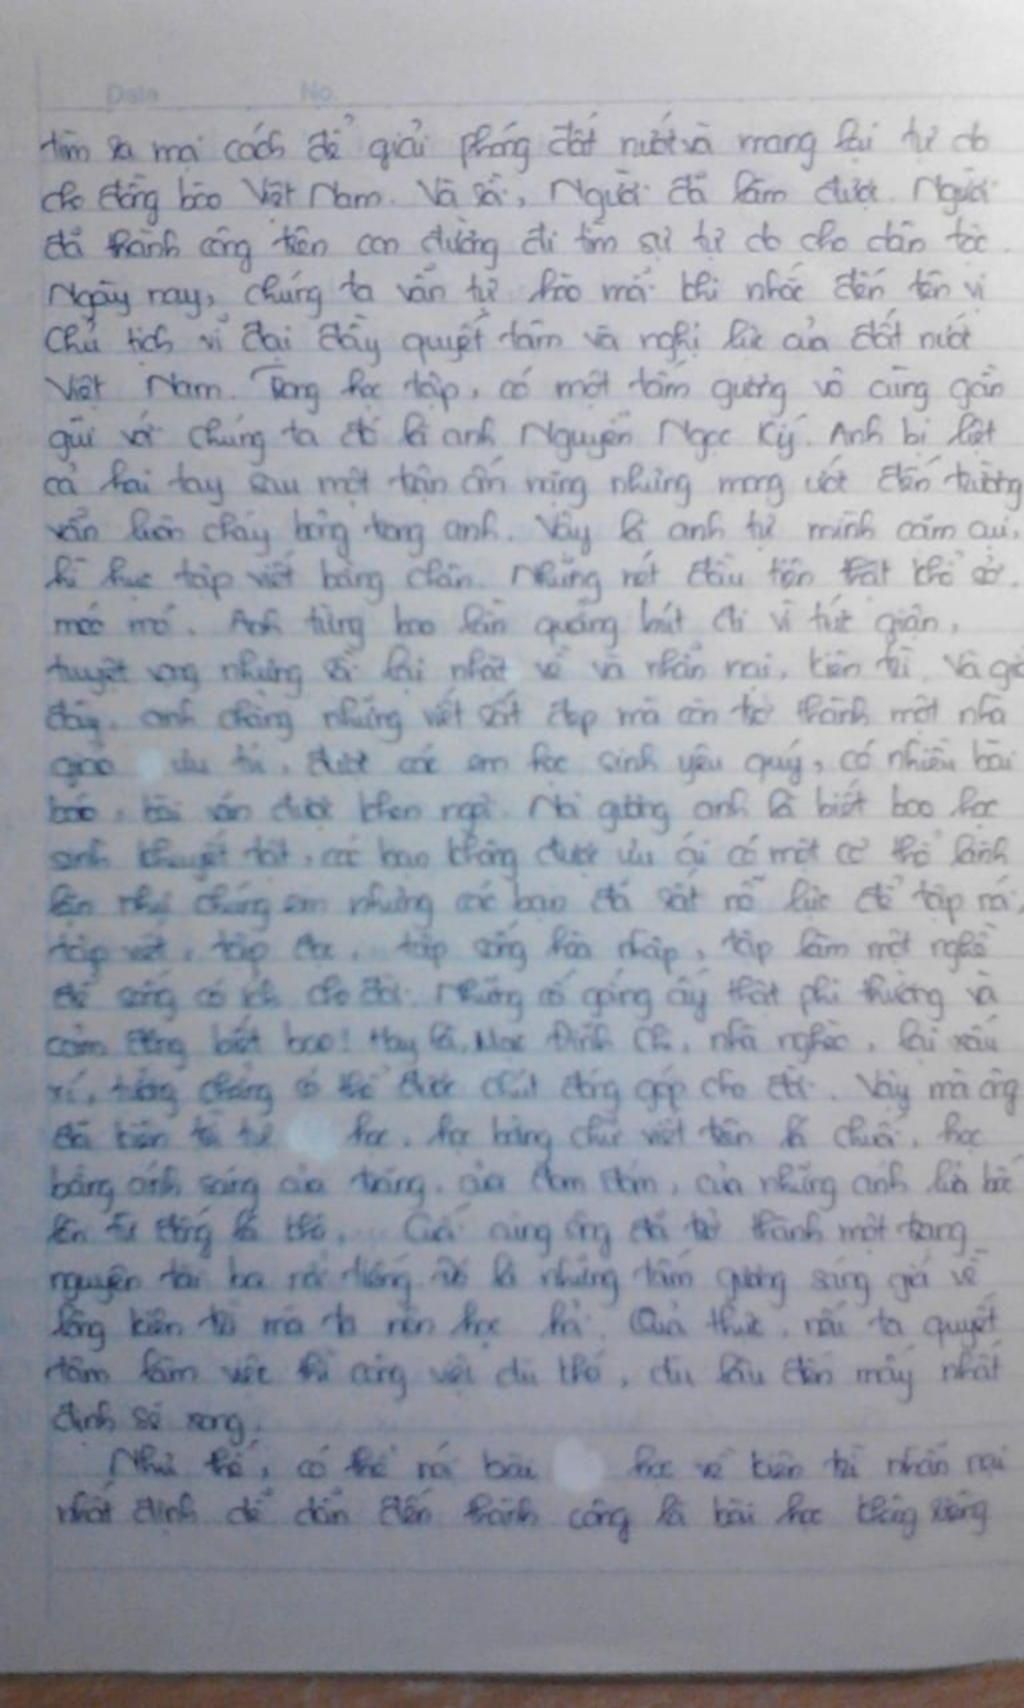 Date No.
tìm ra mọi cách để giải phóng đất nước và mang lại tự do
cho đồng bào Việt Nam. Và rồi, Người đã làm được. Người
đã thành công trên con đường đi tìm sự tự do cho dân tộc.
Ngày nay, chúng ta vẫn tự hào mỗi khi nhắc đến tên vị
Chủ tịch vĩ đại đầy quyết tâm và nghị lực của đất nước
Việt Nam. Trong học tập, có một tấm gương vô cùng gần
gũi với chúng ta đó là anh Nguyễn Ngọc Ký. Anh bị liệt
cả hai tay sau một trận ốm nặng nhưng mong ước đến trường
vẫn luôn cháy bỏng trong anh. Vậy là anh tự mình cắm cụi,
hì hục tập viết bằng chân. Những nét đầu tiên thật khổ sở,
méo mó. Anh từng bao lần quẳng bút đi vì tức giận,
tuyệt vọng nhưng rồi lại nhặt về và nhẫn nại, kiên trì. Và giờ
đây, anh chẳng những viết rất đẹp mà còn trở thành một nhà
giáo ưu tú, được các em học sinh yêu quý, có nhiều bài
báo, bài văn được khen ngợi. Noi gương anh là biết bao học
sinh khuyết tật, các bạn không được ưu ái có một cơ thể lành
lặn như chúng em nhưng các bạn đã rất nỗ lực để tập nói,
tập viết, tập đọc, tập sống hòa nhập, tập làm một nghề
để sống có ích cho đời. Những cố gắng ấy thật phi thường và
cảm động biết bao! Hay là, Mạc Đĩnh Chi, nhà nghèo, lại xấu
xí, tưởng chẳng có thể được chút đóng góp cho đời. Vậy mà ông
đã kiên trì tự học, học bằng chữ viết trên lá chuối, học
bằng ánh sáng của trăng, của đom đóm, của những ánh lửa bốc
lên từ đống lá khô,... Cuối cùng ông đã trở thành một trạng
nguyên tài ba nổi tiếng. Đó là những tấm gương sáng giá về
lòng kiên trì mà ta nên học hỏi. Quả thực, nếu ta quyết
tâm làm việc thì công việc dù khó, dù lâu đến mấy nhất
định sẽ xong.
Như thế, có thể nói bài học về kiên trì nhẫn nại
nhất định để dẫn đến thành công là bài học không riêng